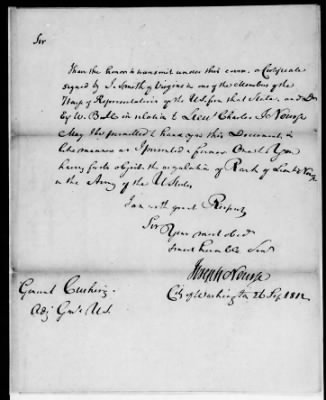 Sir
I have the honor to transmit under this cover, a Certificate
signed by J. Smith of Virginia one of the Members of the
House of Representatives of the U.S. from that State, and
by W. Balls in relation to Lieut Charles Jo Nourse
May I be permitted to have upon this Document, in
the manner as I presented a former One to You
having for its object, the regulation of Rank of Lieut Nourse
in the Army of the U States.
I am with great Respect
Sir
Your most obed
& most humble Serv
Joseph Nourse
City of Washington 26 Sep 1812
General Cushing.
Adj Gen'l U.S.